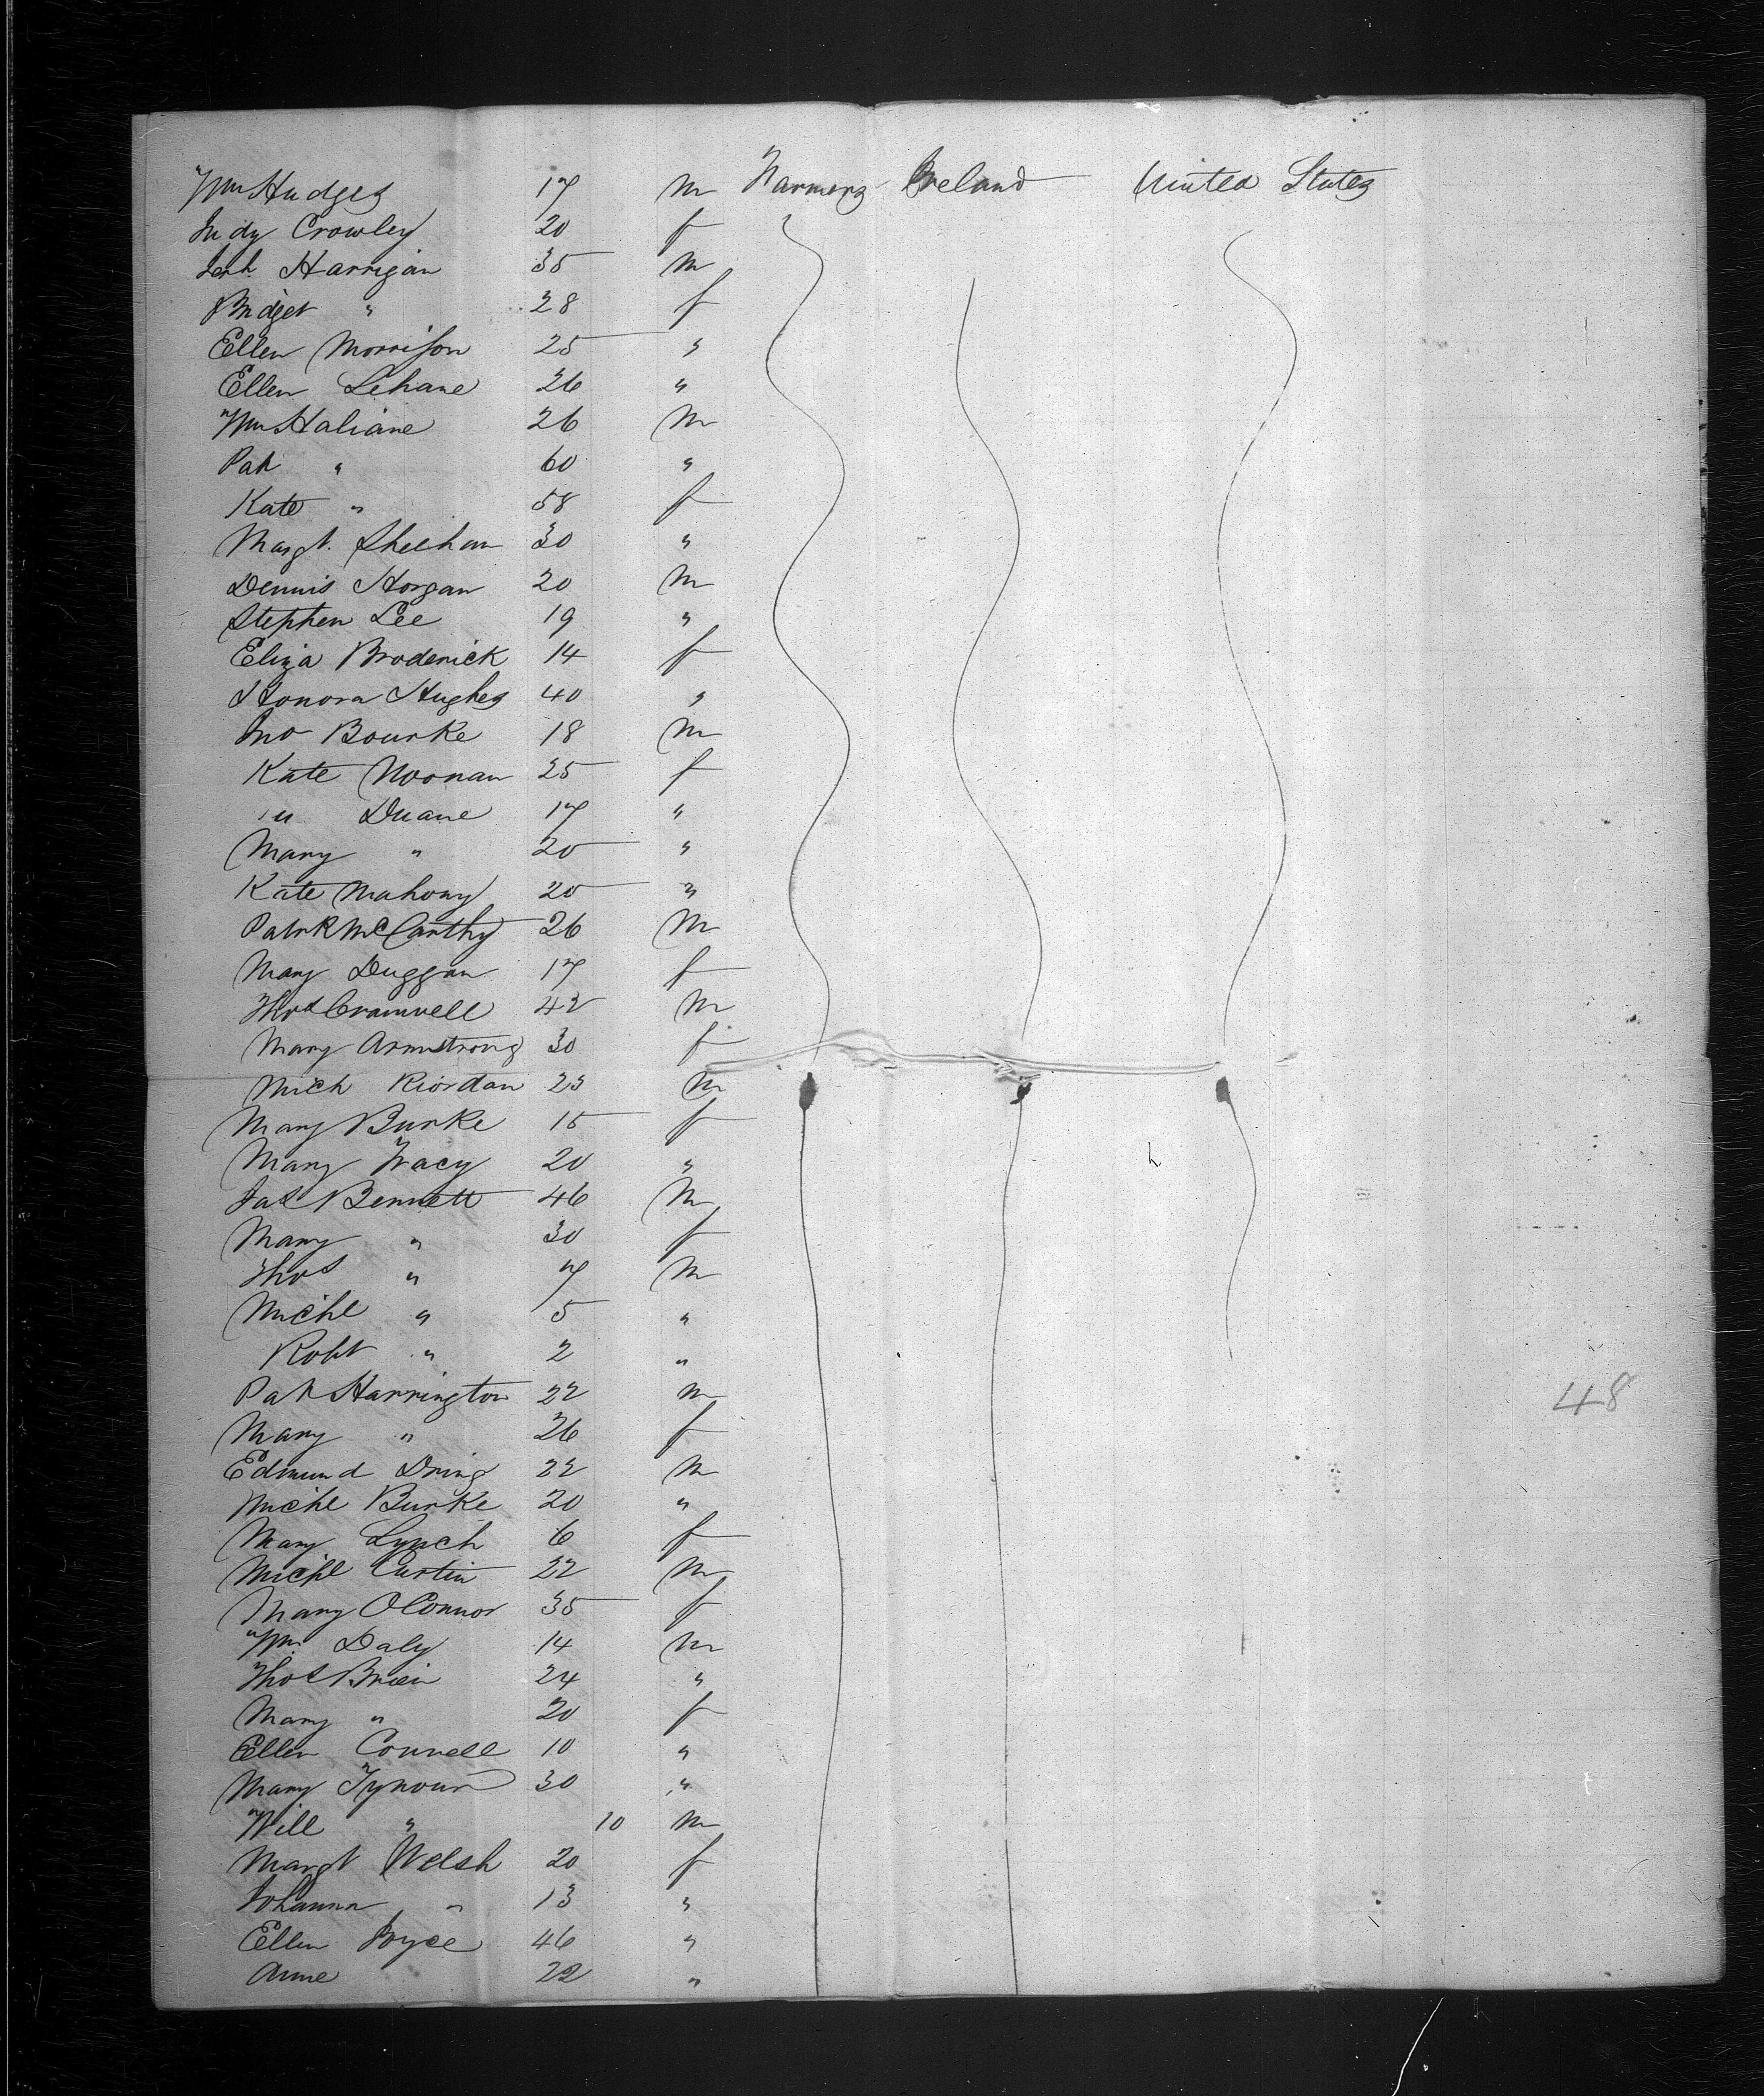 Wm Hudges 17 m Farmers Ireland United States
Judy Crowley 20 f
Jerh Harrigan 35 m
Bridget " 28 f
Ellen Morrison 25 "
Ellen Lehane 26 "
Wm Haliane 26 m
Pat " 60 "
Kate " 58 f
Margt. Sheehan 30 "
Dennis Horgan 20 m
Stephen Lee 19 "
Eliza Broderick 14 f
Honora Hughes 40 "
Jno Bourke 18 m
Kate Noonan 25 f
" Duane 17 "
Mary " 20 "
Kate Mahony 20 "
Patrk McCarthy 26 m
Mary Duggan 17 f
Thos Cramwell 42 m
Mary Armstrong 30 f
Mich Riordan 23 m
Mary Burke 15 f
Mary Tracy 20 "
Jas Bennett 46 m
Mary " 30 f
Thos " 7 m
Michl " 5 "
Robt " 2 "
Pat Harrington 22 m
48
Mary " 26 f
Edmund Dring 22 m
Michl Burke 20 "
Mary Lynch 6 f
Michl Curtin 22 m
Mary OConnor 35 f
Wm Daly 14 m
Thos Brien 24 "
Mary " 20 f
Ellen Connell 10 "
Mary Tynour 30 "
Will " 10 m
Margt Welsh 20 f
Johanna " 13 "
Ellen Joyce 46 "
Anne 22 "